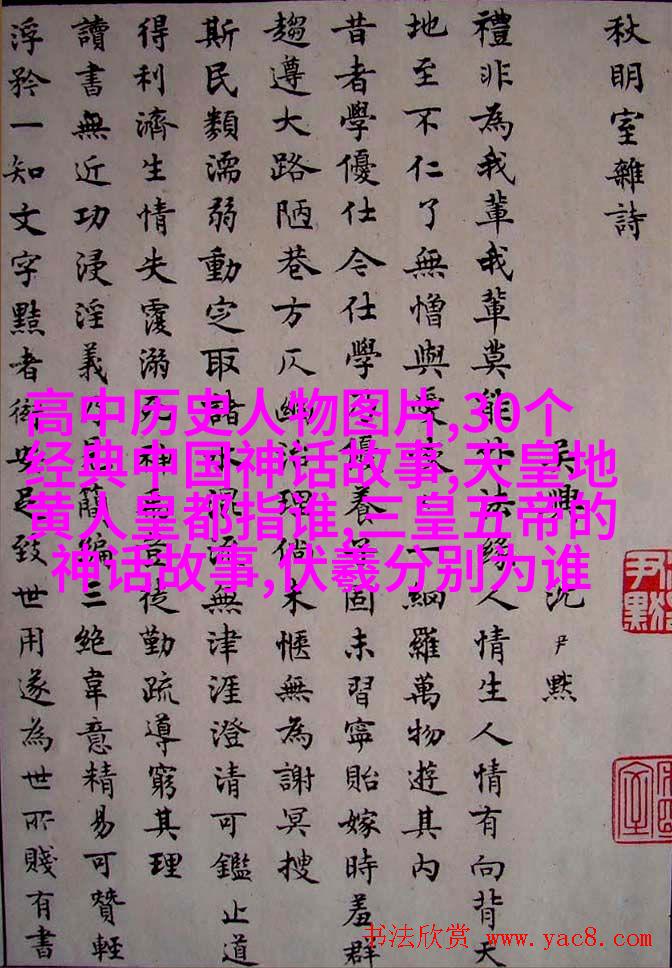 秋明室雜詩
吳興 沈尹默
禮非為我輩我輩莫能外法緣人情生人情有向背天
地至不仁了無憎與愛一綱羅萬物遊其內
昔者學優仕今仕學優養固未習寧貽嫁時羞群
趨遵大路陋巷方仄幽治理倘未愜無為謝冥搜
斯民類濡弱動定取諸水混流無津涯澄清可鑑止道
得利濟生情失覆溺死神禹豈徒勤疏導窮其理
讀書無近功浸淫義乃見簡編三絕韋意精易可贊輕
浮矜一知文字黠者衒安足致世用遂為世所賤有書
高中历史人物图片,30个
经典中国神话故事,天皇地
黄人皇都指谁,三皇五帝的
神话故事,伏羲分别为谁
尹默
书法欣赏 www.yac8.com